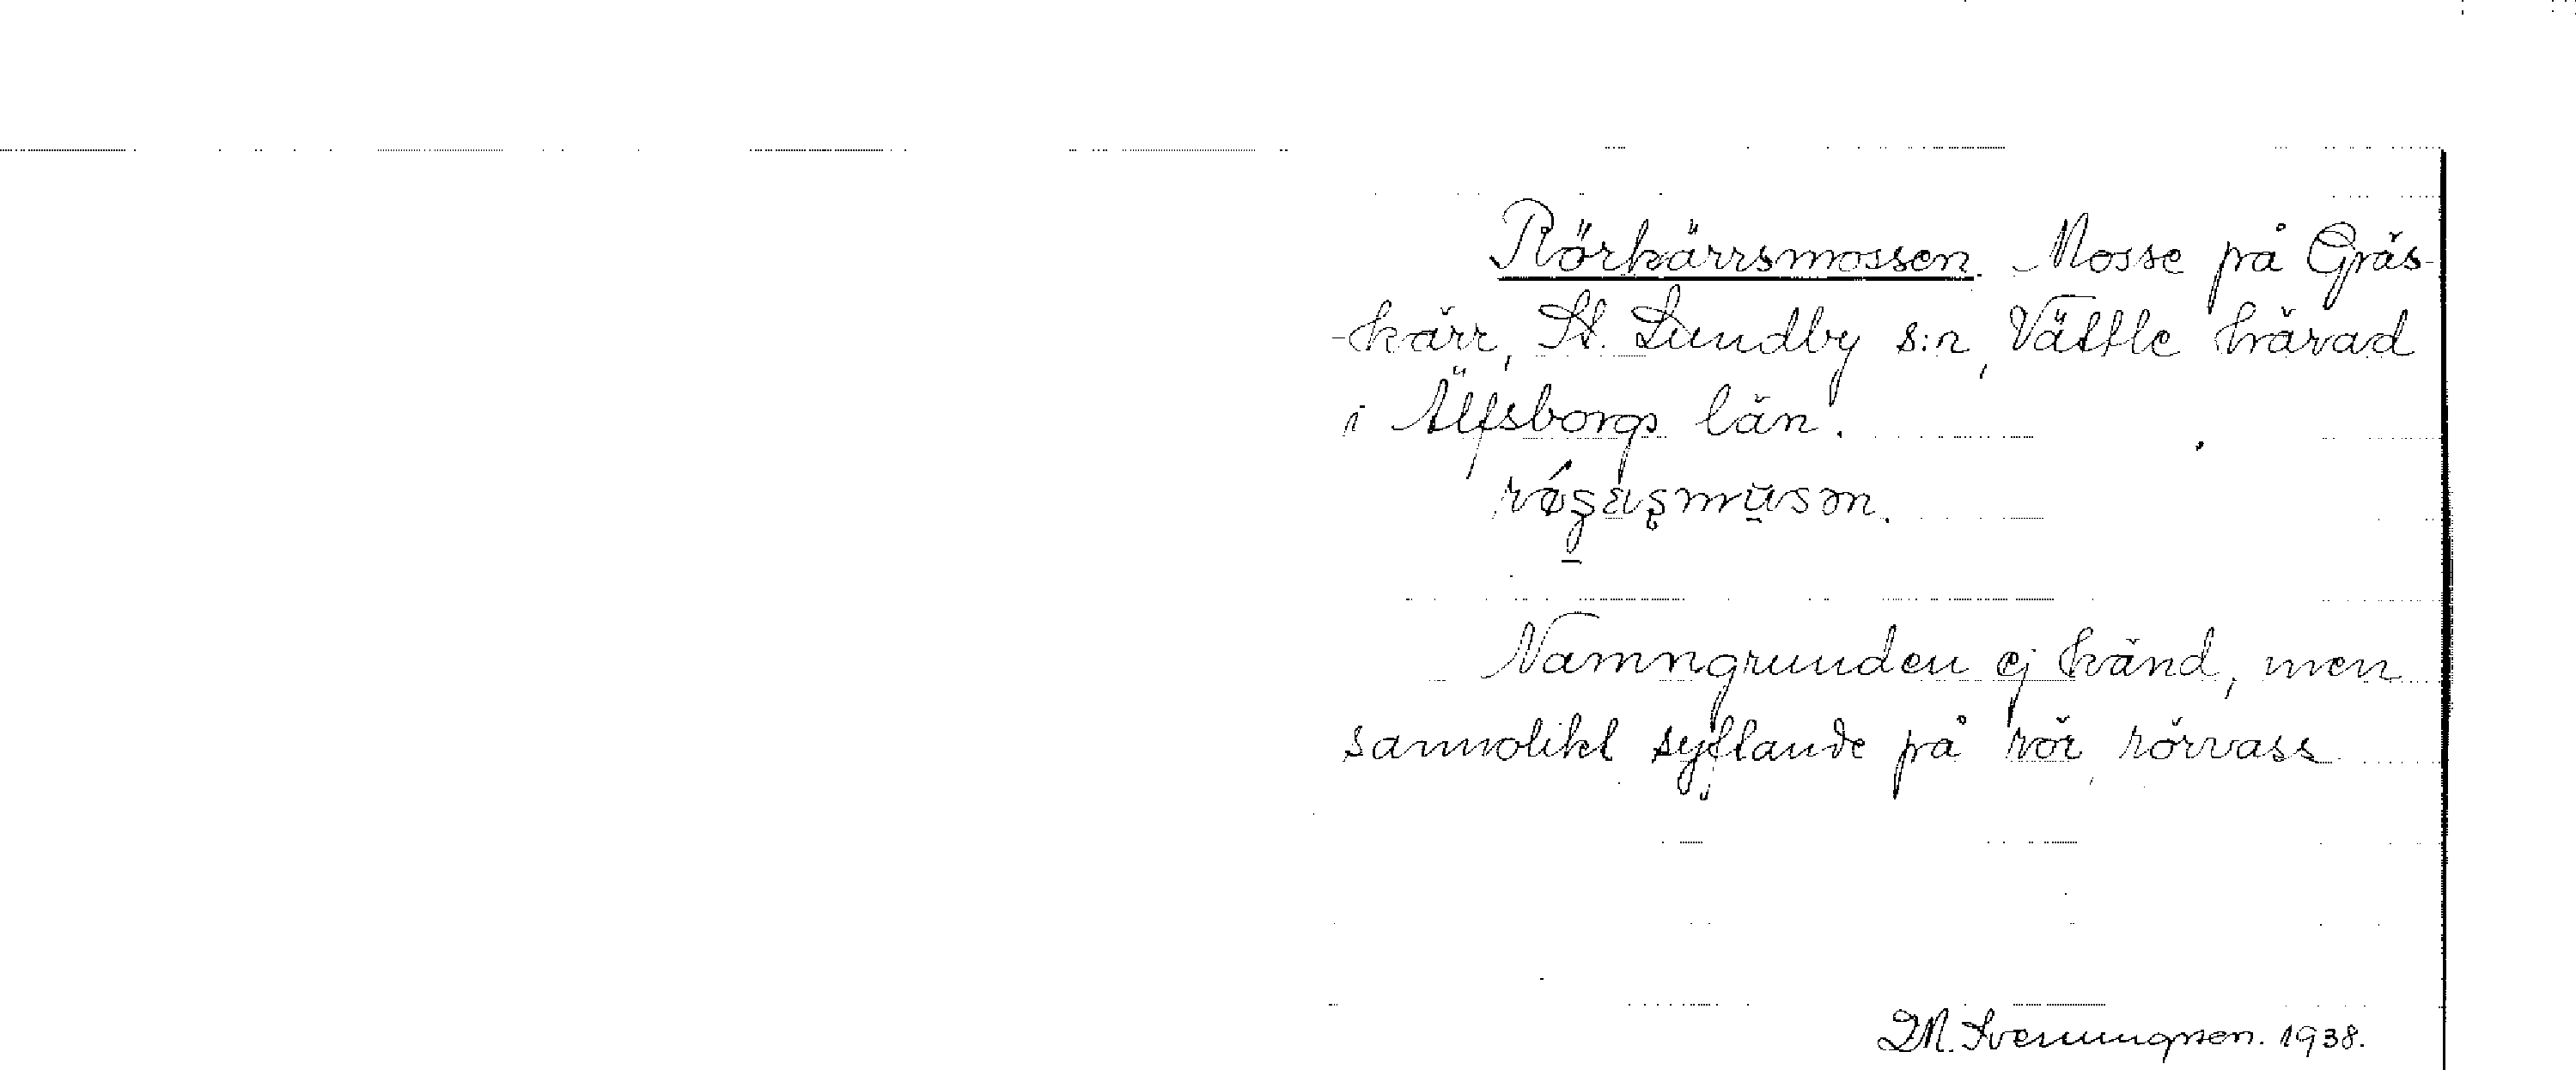 Rörkärrsmossen. Mosse på Gräs-
-kärr, St. Lundby s:n, Vättle härad
i Älfsborgs län.
Namngrunden ej känd, men
sannolikt syftande på rör, rörvass
1938.